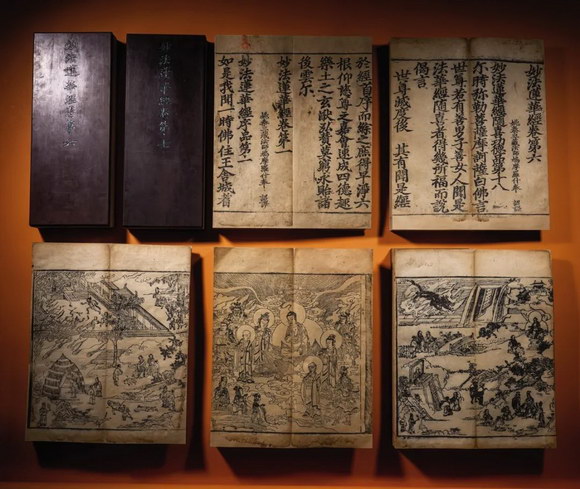 妙法蓮華經
妙法蓮華經
於經首序而綜之庶得早淨六
根仰慈尊之嘉會速成四德趣
樂土之玄猷弘贊莫窮永貽諸
後云爾
妙法蓮華經卷第一
姚秦三藏法師鳩摩羅什奉 詔譯
妙法蓮華經序品第一
如是我聞一時佛住王舍城耆
妙法蓮華經卷第六
姚秦三藏法師鳩摩羅什奉 詔譯
妙法蓮華經隨喜功德品第十八
尒時彌勒菩薩摩訶薩白佛言
世尊若有善男子善女人聞是
法華經隨喜者得幾所福而說
偈言
世尊滅度後 其有聞是經